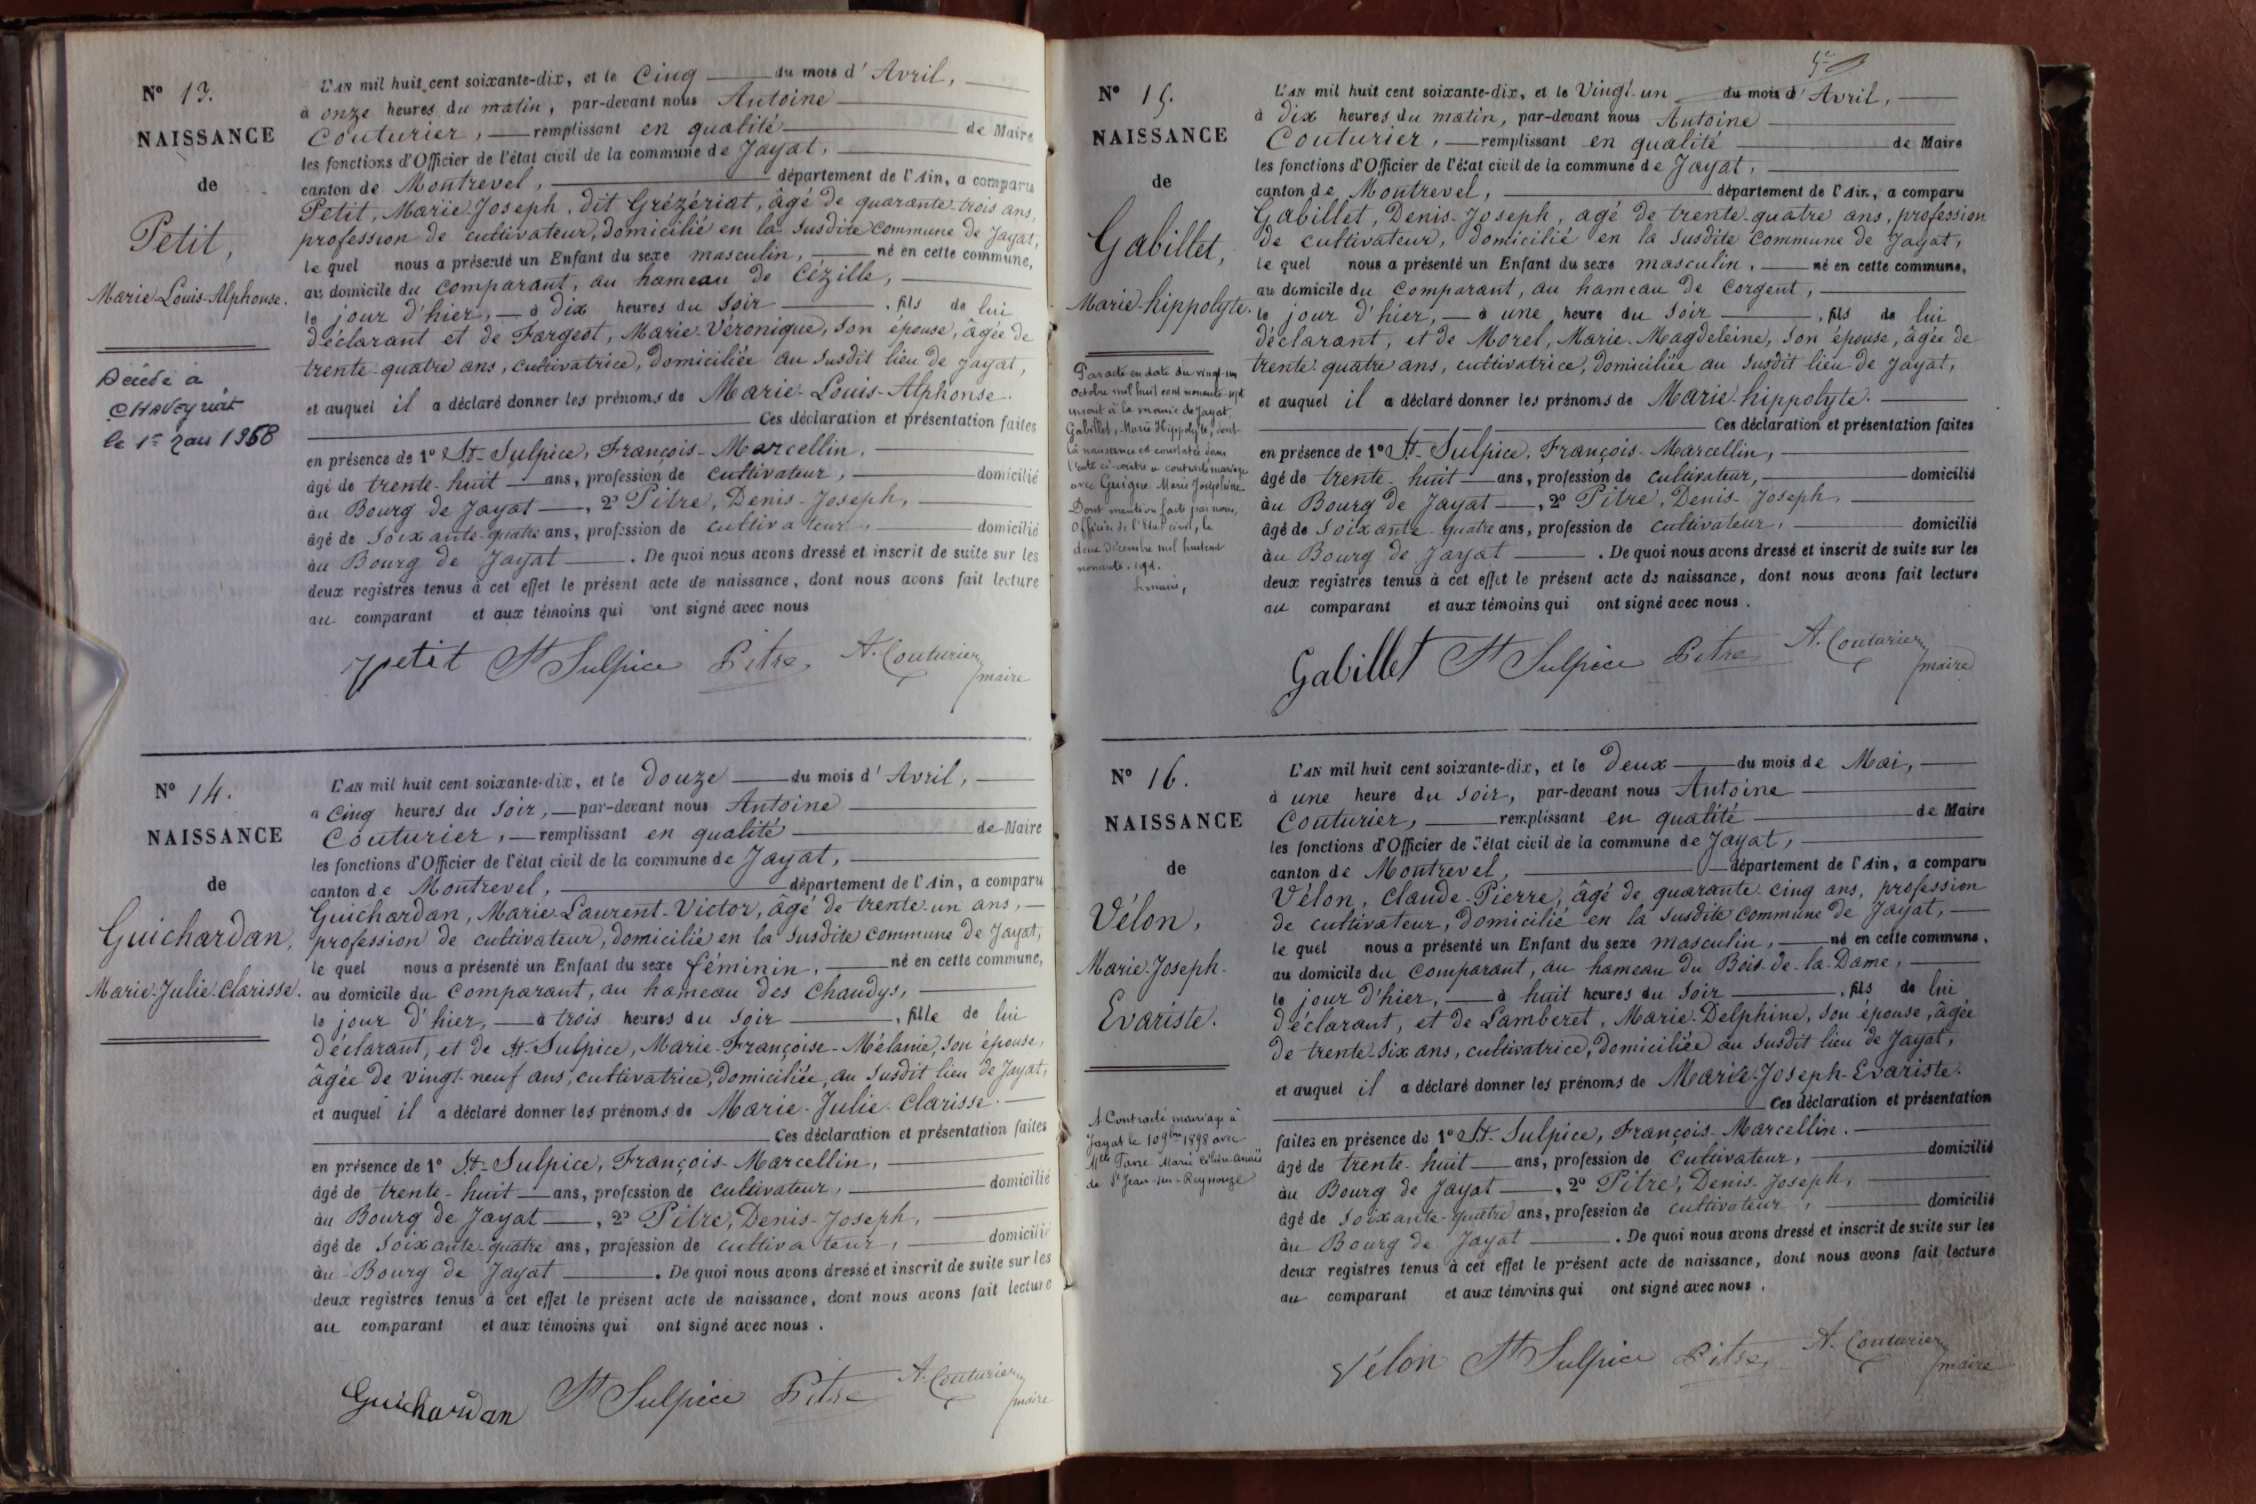 N° 13.
NAISSANCE
de
Petit,
Marie-Louis-Alphonse.
Décédé à
CHAVEYRIAT
le 1er
L'AN mil huit cent soixante-dix, et le Cinq du mois d'Avril,
à onze heures du matin, par-devant nous Antoine
Couturier, remplissant en qualité de Maire
les fonctions d'Officier de l'état civil de la commune de Jayat,
canton de Montrevel, département de l'Ain, a comparu
Petit, Marie-Joseph, dit Grézériat, âgé de quarante-trois ans,
profession de cultivateur, domicilié en la susdite commune de Jayat,
le quel nous a présenté un Enfant du sexe masculin, né en cette commune,
au domicile du comparant, au hameau de Cézille,
le jour d'hier, à dix heures du soir, fils de lui
déclarant et de Fargeot, Marie-Véronique, son épouse, âgée de
trente-quatre ans, cultivatrice, domiciliée au susdit lieu de Jayat,
et auquel il a déclaré donner les prénoms de Marie-Louis-Alphonse.
Ces déclaration et présentation faites
en présence de 1° St-Sulpice, François-Marcellin,
âgé de trente-huit ans, profession de cultivateur, domicilié
au Bourg de Jayat, 2° Pitre, Denis-Joseph,
âgé de soixante-quatre ans, profession de cultivateur, domicilié
au Bourg de Jayat. De quoi nous avons dressé et inscrit de suite sur les
deux registres tenus à cet effet le présent acte de naissance, dont nous avons fait lecture
au comparant et aux témoins qui ont signé avec nous
petit St Sulpice Pitre A. Couturier
maire
N° 14.
NAISSANCE
de
Guichardan,
Marie-Julie-Clarisse.
L'AN mil huit cent soixante-dix, et le douze du mois d'Avril,
à cinq heures du soir, par-devant nous Antoine
Couturier, remplissant en qualité de Maire
les fonctions d'Officier de l'état civil de la commune de Jayat,
canton de Montrevel, département de l'Ain, a comparu
Guichardan, Marie-Laurent-Victor, âgé de trente-un ans,
profession de cultivateur, domicilié en la susdite commune de Jayat,
le quel nous a présenté un Enfant du sexe féminin, né en cette commune,
au domicile du comparant, au hameau des Chaudys,
le jour d'hier, à trois heures du soir, fille de lui
déclarant, et de St-Sulpice, Marie-Françoise-Mélanie, son épouse,
âgée de vingt-neuf ans, cultivatrice, domiciliée, au susdit lieu de Jayat,
et auquel il a déclaré donner les prénoms de Marie-Julie-Clarisse.
Ces déclaration et présentation faites
en présence de 1° St-Sulpice, François-Marcellin,
âgé de trente-huit ans, profession de cultivateur, domicilié
au Bourg de Jayat, 2° Pitre, Denis-Joseph,
âgé de soixante-quatre ans, profession de cultivateur, domicilié
au Bourg de Jayat. De quoi nous avons dressé et inscrit de suite sur les
deux registres tenus à cet effet le présent acte de naissance, dont nous avons fait lecture
au comparant et aux témoins qui ont signé avec nous.
Guichardan St Sulpice Pitre A. Couturier
maire
N° 15.
NAISSANCE
de
Gabillet,
Marie-hippolyte.
Par acte en date du vingt-un
octobre mil huit cent nonante-sept
inscrit à la mairie de Jayat,
Gabillet, Marie Hippolyte, dont
la naissance est constatée dans
l'acte ci-contre a contracté mariage
avec Guigne Marie Joséphine
Dont mention faite par nous,
Officier de l'Etat civil, le
deux Décembre mil huit cent
nonante-sept.
Le maire,
L'AN mil huit cent soixante-dix, et le Vingt-un du mois d'Avril,
à dix heures du matin, par-devant nous Antoine
Couturier, remplissant en qualité de Maire
les fonctions d'Officier de l'état civil de la commune de Jayat,
canton de Montrevel, département de l'Ain, a comparu
Gabillet, Denis-Joseph, agé de trente-quatre ans, profession
de cultivateur, domicilié en la susdite commune de Jayat,
le quel nous a présenté un Enfant du sexe masculin, né en cette commune,
au domicile du comparant, au hameau de Corgent,
le jour d'hier, à une heure du soir, fils de lui
déclarant, et de Morel, Marie-Magdeleine, son épouse, âgée de
trente-quatre ans, cultivatrice, domiciliée au susdit lieu de Jayat,
et auquel il a déclaré donner les prénoms de Marie-hippolyte.
Ces déclaration et présentation faites
en présence de 1° St-Sulpice, François-Marcellin,
âgé de trente-huit ans, profession de cultivateur, domicilié
au Bourg de Jayat, 2° Pitre, Denis-Joseph,
âgé de soixante-quatre ans, profession de cultivateur, domicilié
au Bourg de Jayat. De quoi nous avons dressé et inscrit de suite sur les
deux registres tenus à cet effet le présent acte de naissance, dont nous avons fait lecture
au comparant et aux témoins qui ont signé avec nous.
Gabillet St Sulpice Pitre A. Couturier
maire
N° 16.
NAISSANCE
de
Vélon,
Marie-Joseph-
Evariste.
A Contracté mariage à
Jayat le 10 9bre 1898 avec
Melle Marie
de St Jean-sur-Reyssouze
L'AN mil huit cent soixante-dix, et le deux du mois de Mai,
à une heure du soir, par-devant nous Antoine
Couturier, remplissant en qualité de Maire
les fonctions d'Officier de l'état civil de la commune de Jayat,
canton de Montrevel, département de l'Ain, a comparu
Vélon, Claude-Pierre, âgé de quarante-cinq ans, profession
de cultivateur, domicilié en la susdite commune de Jayat,
le quel nous a présenté un Enfant du sexe masculin, né en cette commune,
au domicile du comparant, au hameau du Bois-de-la-Dame,
le jour d'hier, à huit heures du soir, fils de lui
déclarant, et de Lamberet, Marie-Delphine, son épouse, âgée
de trente-six ans, cultivatrice, domiciliée au susdit lieu de Jayat,
et auquel il a déclaré donner les prénoms de Marie-Joseph-Evariste.
Ces déclaration et présentation
faites en présence de 1° St-Sulpice, François-Marcellin.
âgé de trente-huit ans, profession de cultivateur, domicilié
au Bourg de Jayat, 2° Pitre, Denis-Joseph,
âgé de soixante-quatre ans, profession de cultivateur, domicilié
au Bourg de Jayat. De quoi nous avons dressé et inscrit de suite sur les
deux registres tenus à cet effet le présent acte de naissance, dont nous avons fait lecture
au comparant et aux témoins qui ont signé avec nous.
Vélon St Sulpice Pitre A. Couturier
maire